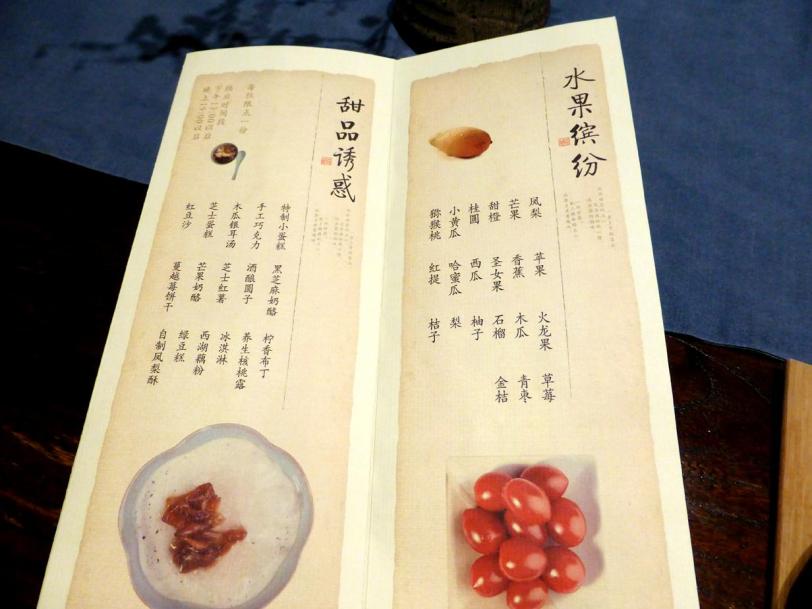 水果缤纷
凤梨
芒果
甜橙
桂圆
小黄瓜
猕猴桃
苹果
香蕉
圣女果
西瓜
哈蜜瓜
红提
火龙果
木瓜
石榴
柚子
梨
桔子
草莓
青枣
金桔
甜品诱惑
每位限点一份
供应时间段
特制小蛋糕
手工巧克力
木瓜银耳汤
芝士蛋糕
红豆沙
黑芝麻奶酪
酒酿圆子
芝士红薯
芒果奶酪
蔓越莓饼干
柠香布丁
养生核桃露
冰淇淋
西湖藕粉
绿豆糕
自制凤梨酥